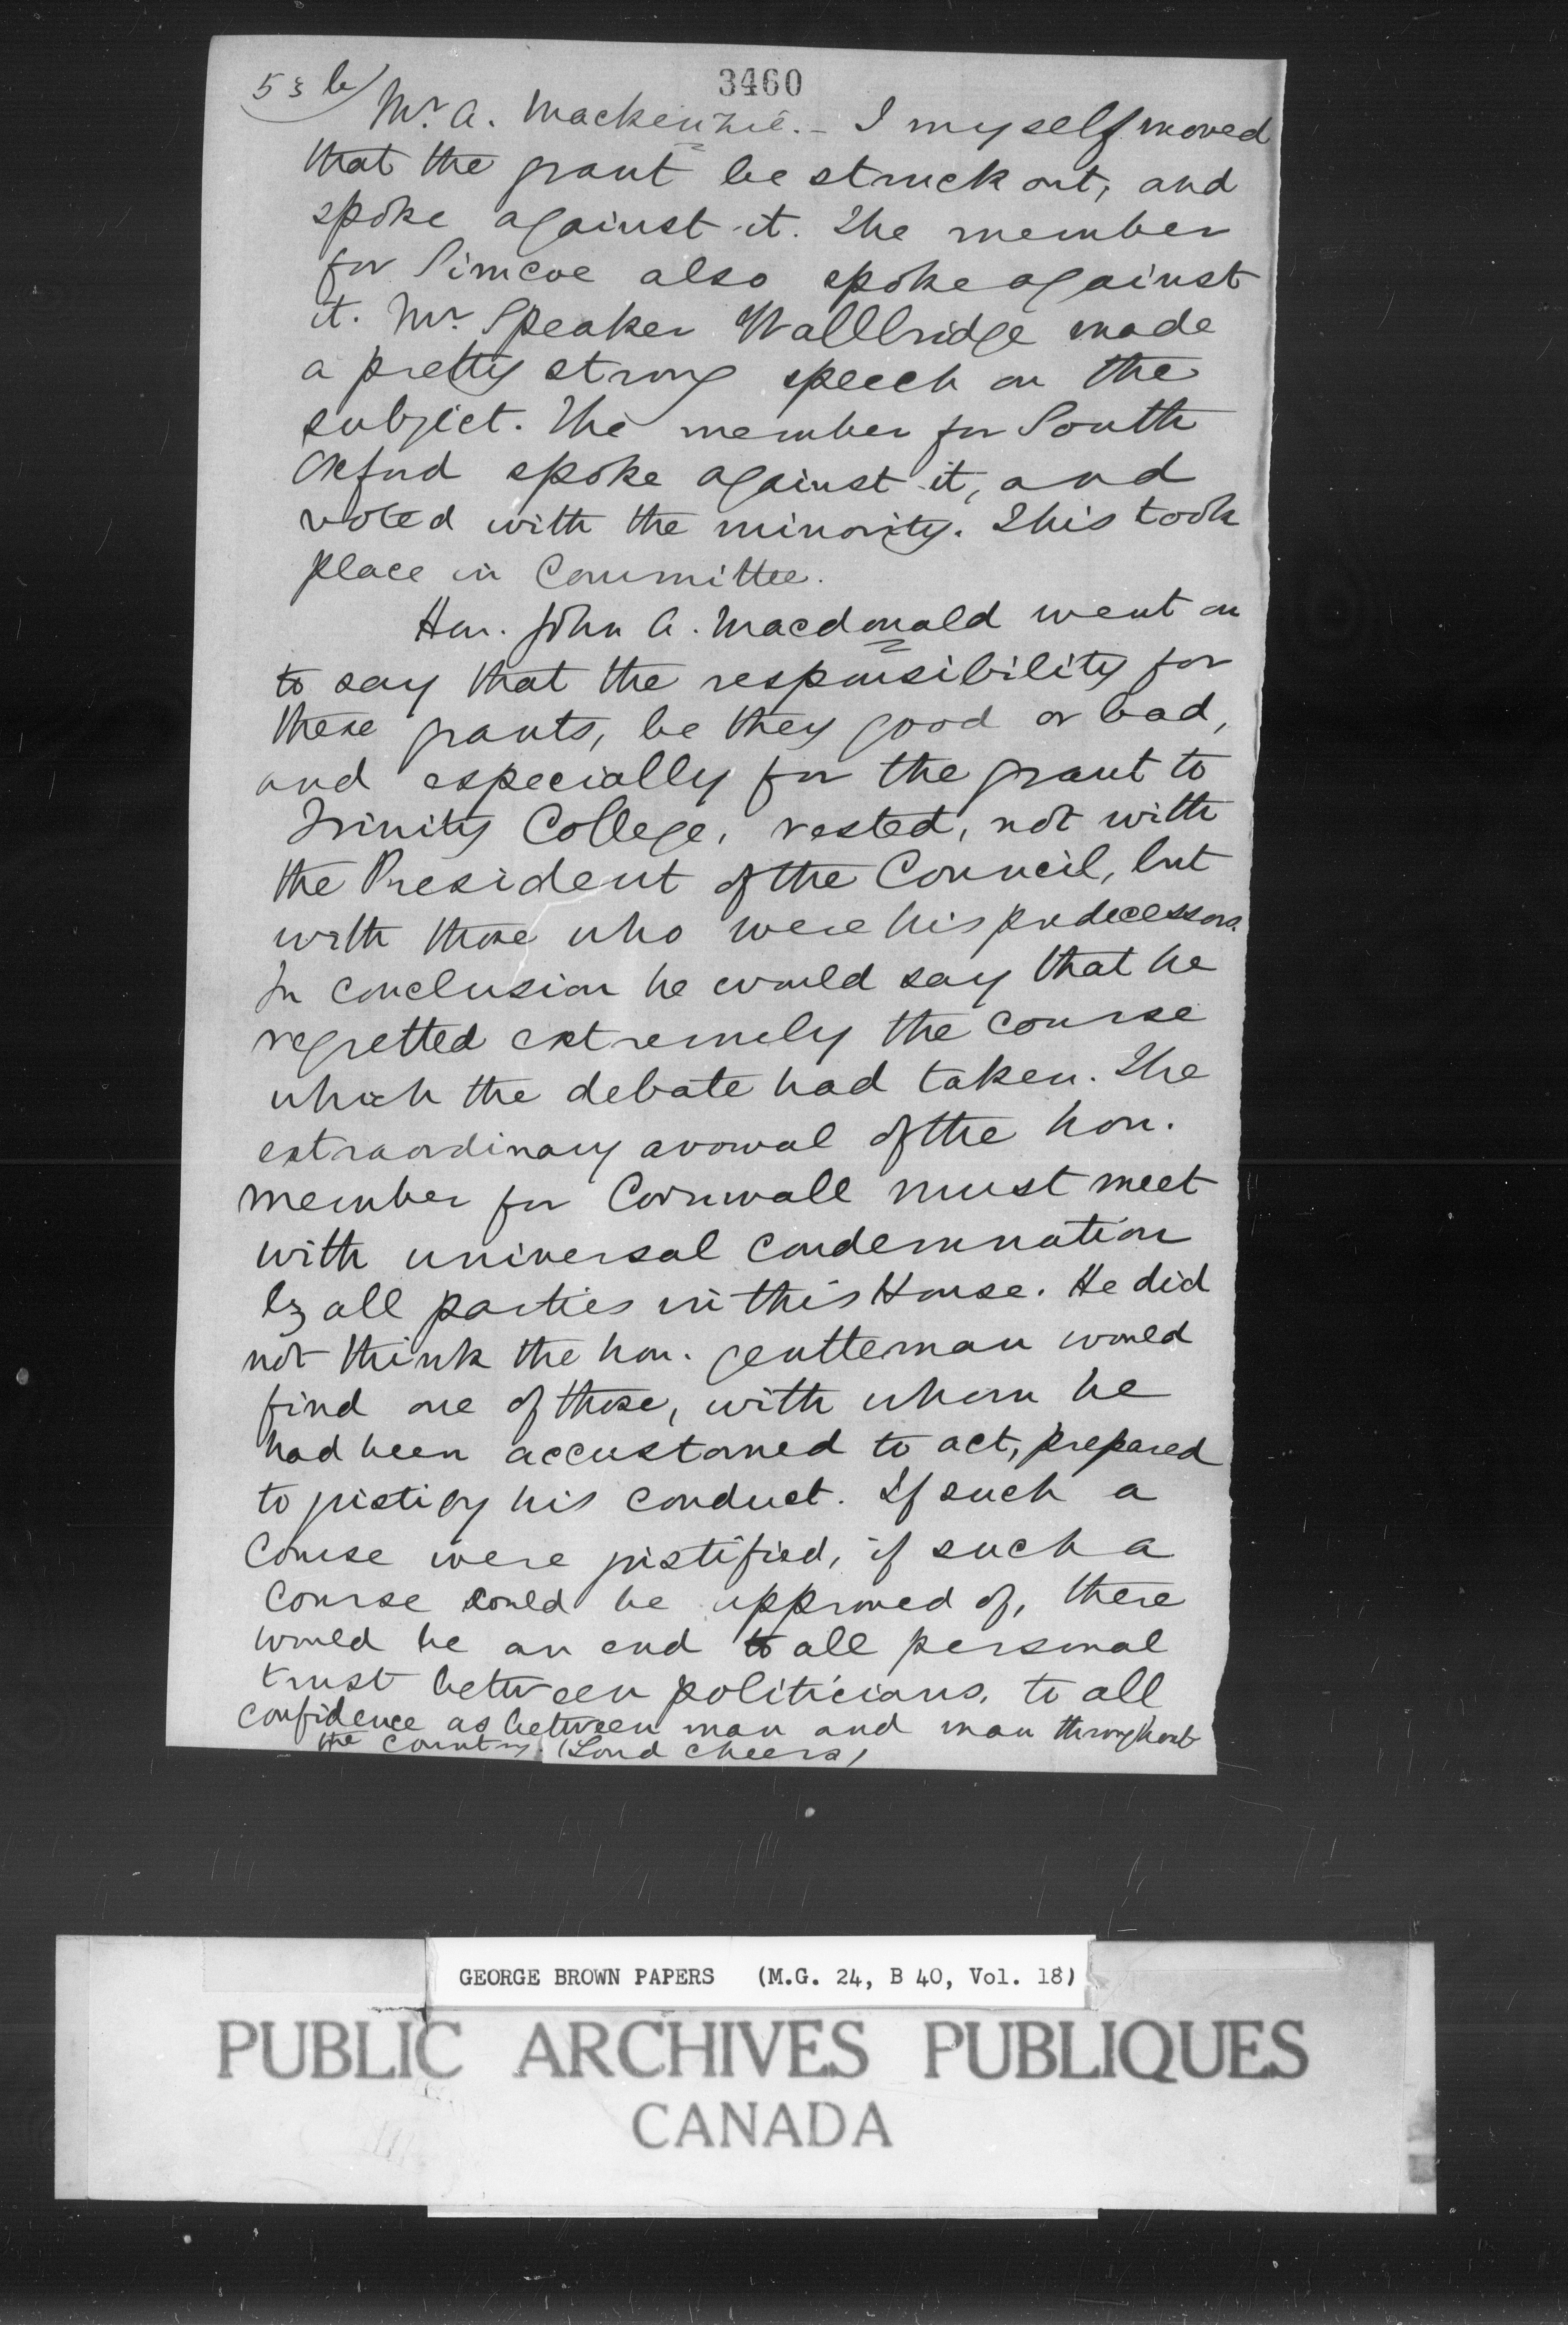 3460
53 b
Mr. A. Mackenzie. - I myself moved
that the grant be struck out, and
spoke against it. The member
for Simcoe also spoke against
it. Mr. Speaker Wallbridge made
a pretty strong speech on the
subject. The member for South
Oxford spoke against it, and
voted with the minority. This took
place in Committee.
Hon. John A. Macdonald went on
to say that the responsibility for
these grants, be they good or bad,
and especially for the grant to
Trinity College, rested, not with
the President of the Council, but
with those who were his predecessors.
In conclusion he would say that he
regretted extremely the course
which the debate had taken. The
extraordinary avowal of the hon.
member for Cornwall must meet
with universal condemnation
by all parties in this House. He did
not think the hon. gentleman would
find one of those, with whom he
had been accustomed to act, prepared
to justify his conduct. If such a
course were justified, if such a
course could be approved of, there
would be an end to all personal
trust between politicians, to all
confidence as between man and man throughout
the country. (Loud cheers)
GEORGE BROWN PAPERS (M.G. 24, B 40, Vol. 18)
PUBLIC ARCHIVES PUBLIQUES
CANADA